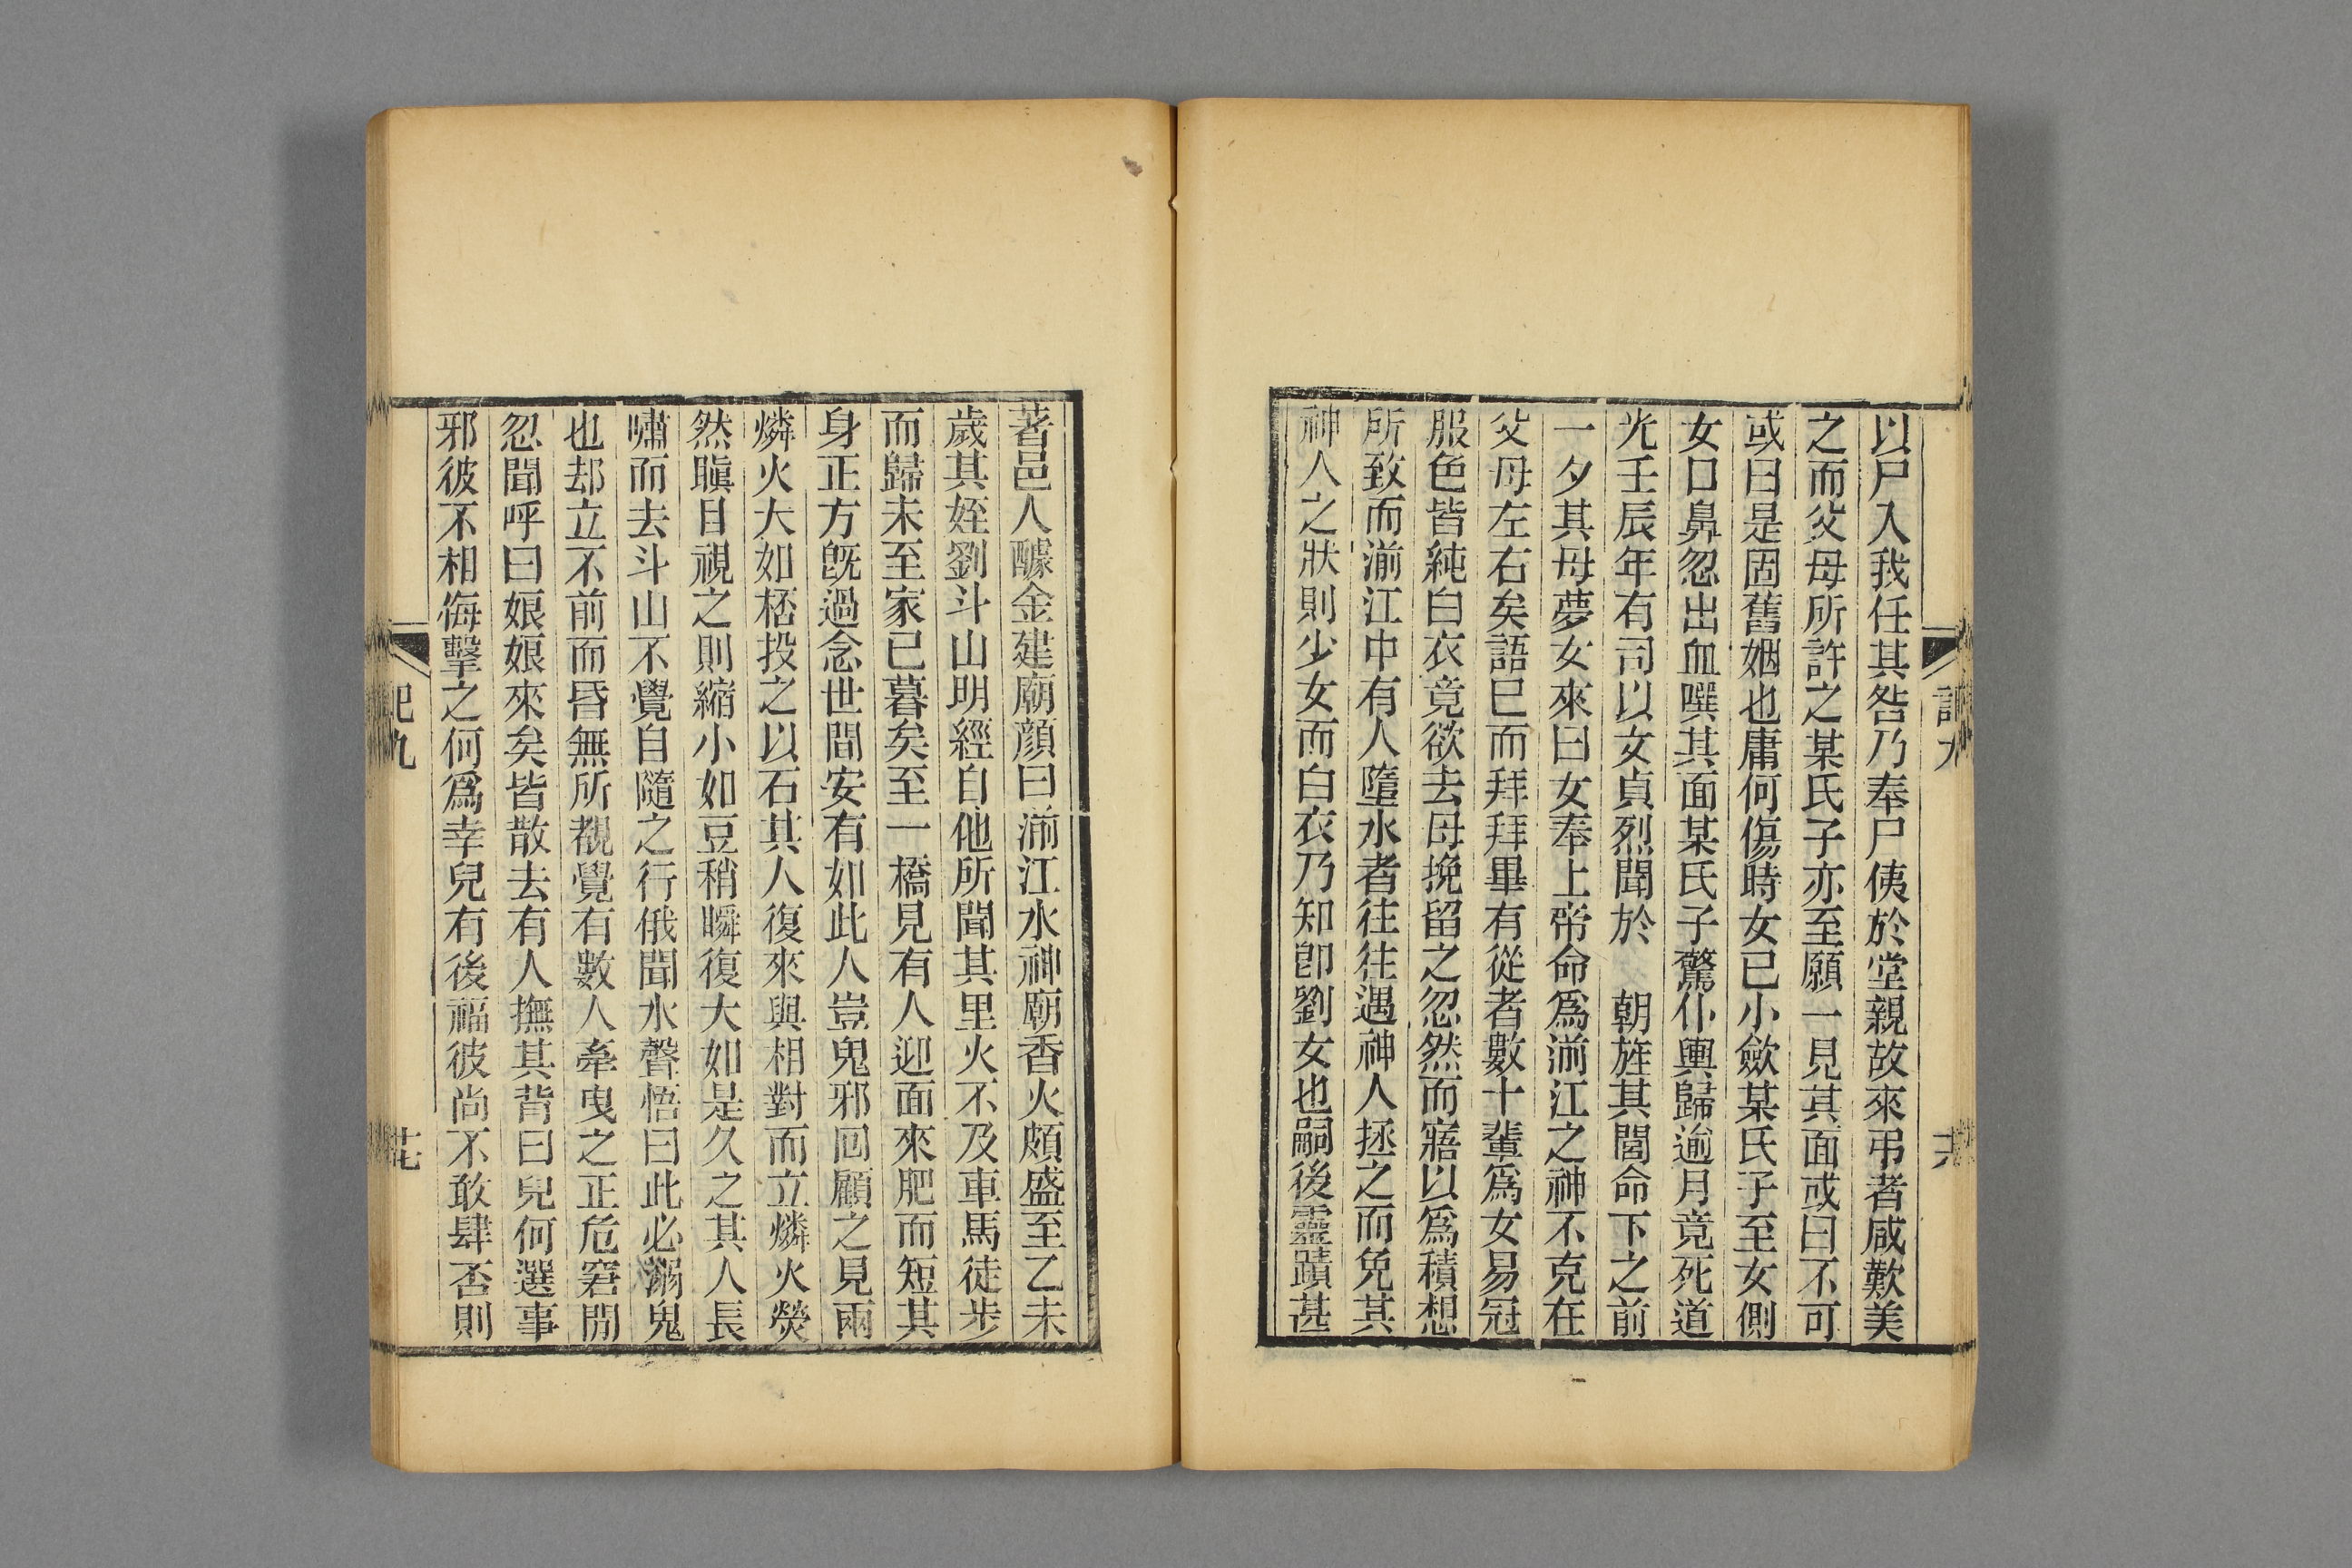 以尸入我任其咎乃奉尸侇於堂親故來弔者咸歎美
之而父母所許之某氏子亦至願一見其面或曰不可
或曰是固舊姻也庸何傷時女已小歛某氏子至女側
女口鼻忽出血噀其面某氏子驚仆輿歸逾月竟死道
光壬辰年有司以女貞烈聞於 朝旌其閭命下之前
一夕其母夢女來曰女奉上帝命爲湔江之神不克在
父母左右矣語已而拜拜畢有從者數十輩爲女易冠
服色皆純白衣竟欲去母挽留之忽然而寤以爲積想
所致而湔江中有人墮水者往往遇神人拯之而免其
神人之狀則少女而白衣乃知卽劉女也嗣後靈蹟甚
著邑人醵金建廟顔曰湔江水神廟香火頗盛至乙未
歲其姪劉斗山明經自他所聞其里火不及車馬徒步
而歸未至家已暮矣至一橋見有人迎面來肥而短其
身正方旣過念世間安有如此人豈鬼邪回顧之見兩
燐火大如桮投之以石其人復來與相對而立燐火熒
然瞋目視之則縮小如豆稍瞬復大如是久之其人長
嘯而去斗山不覺自隨之行俄聞水聲悟曰此必溺鬼
也却立不前而昏無所覩覺有數人牽曳之正危窘閒
忽聞呼曰娘娘來矣皆散去有人撫其背曰兒何選事
邪彼不相侮擊之何爲幸兒有後福彼尚不敢肆否則